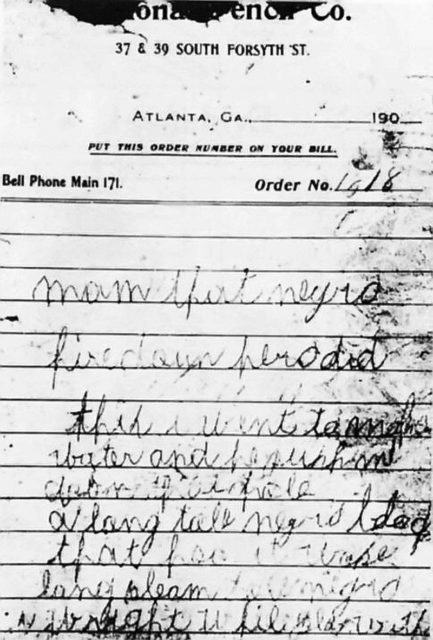 Pencil Co.
37 & 39 SOUTH FORSYTH ST.
ATLANTA, GA., 190
PUT THIS ORDER NUMBER ON YOUR BILL.
Bell Phone Main 171. Order No. 1918
mam that negro
hire doun here did
this i went to make
water and he push me
doun that hole
a long tall negro black
that hoo it wase
long sleam tall negro
i wright while play with